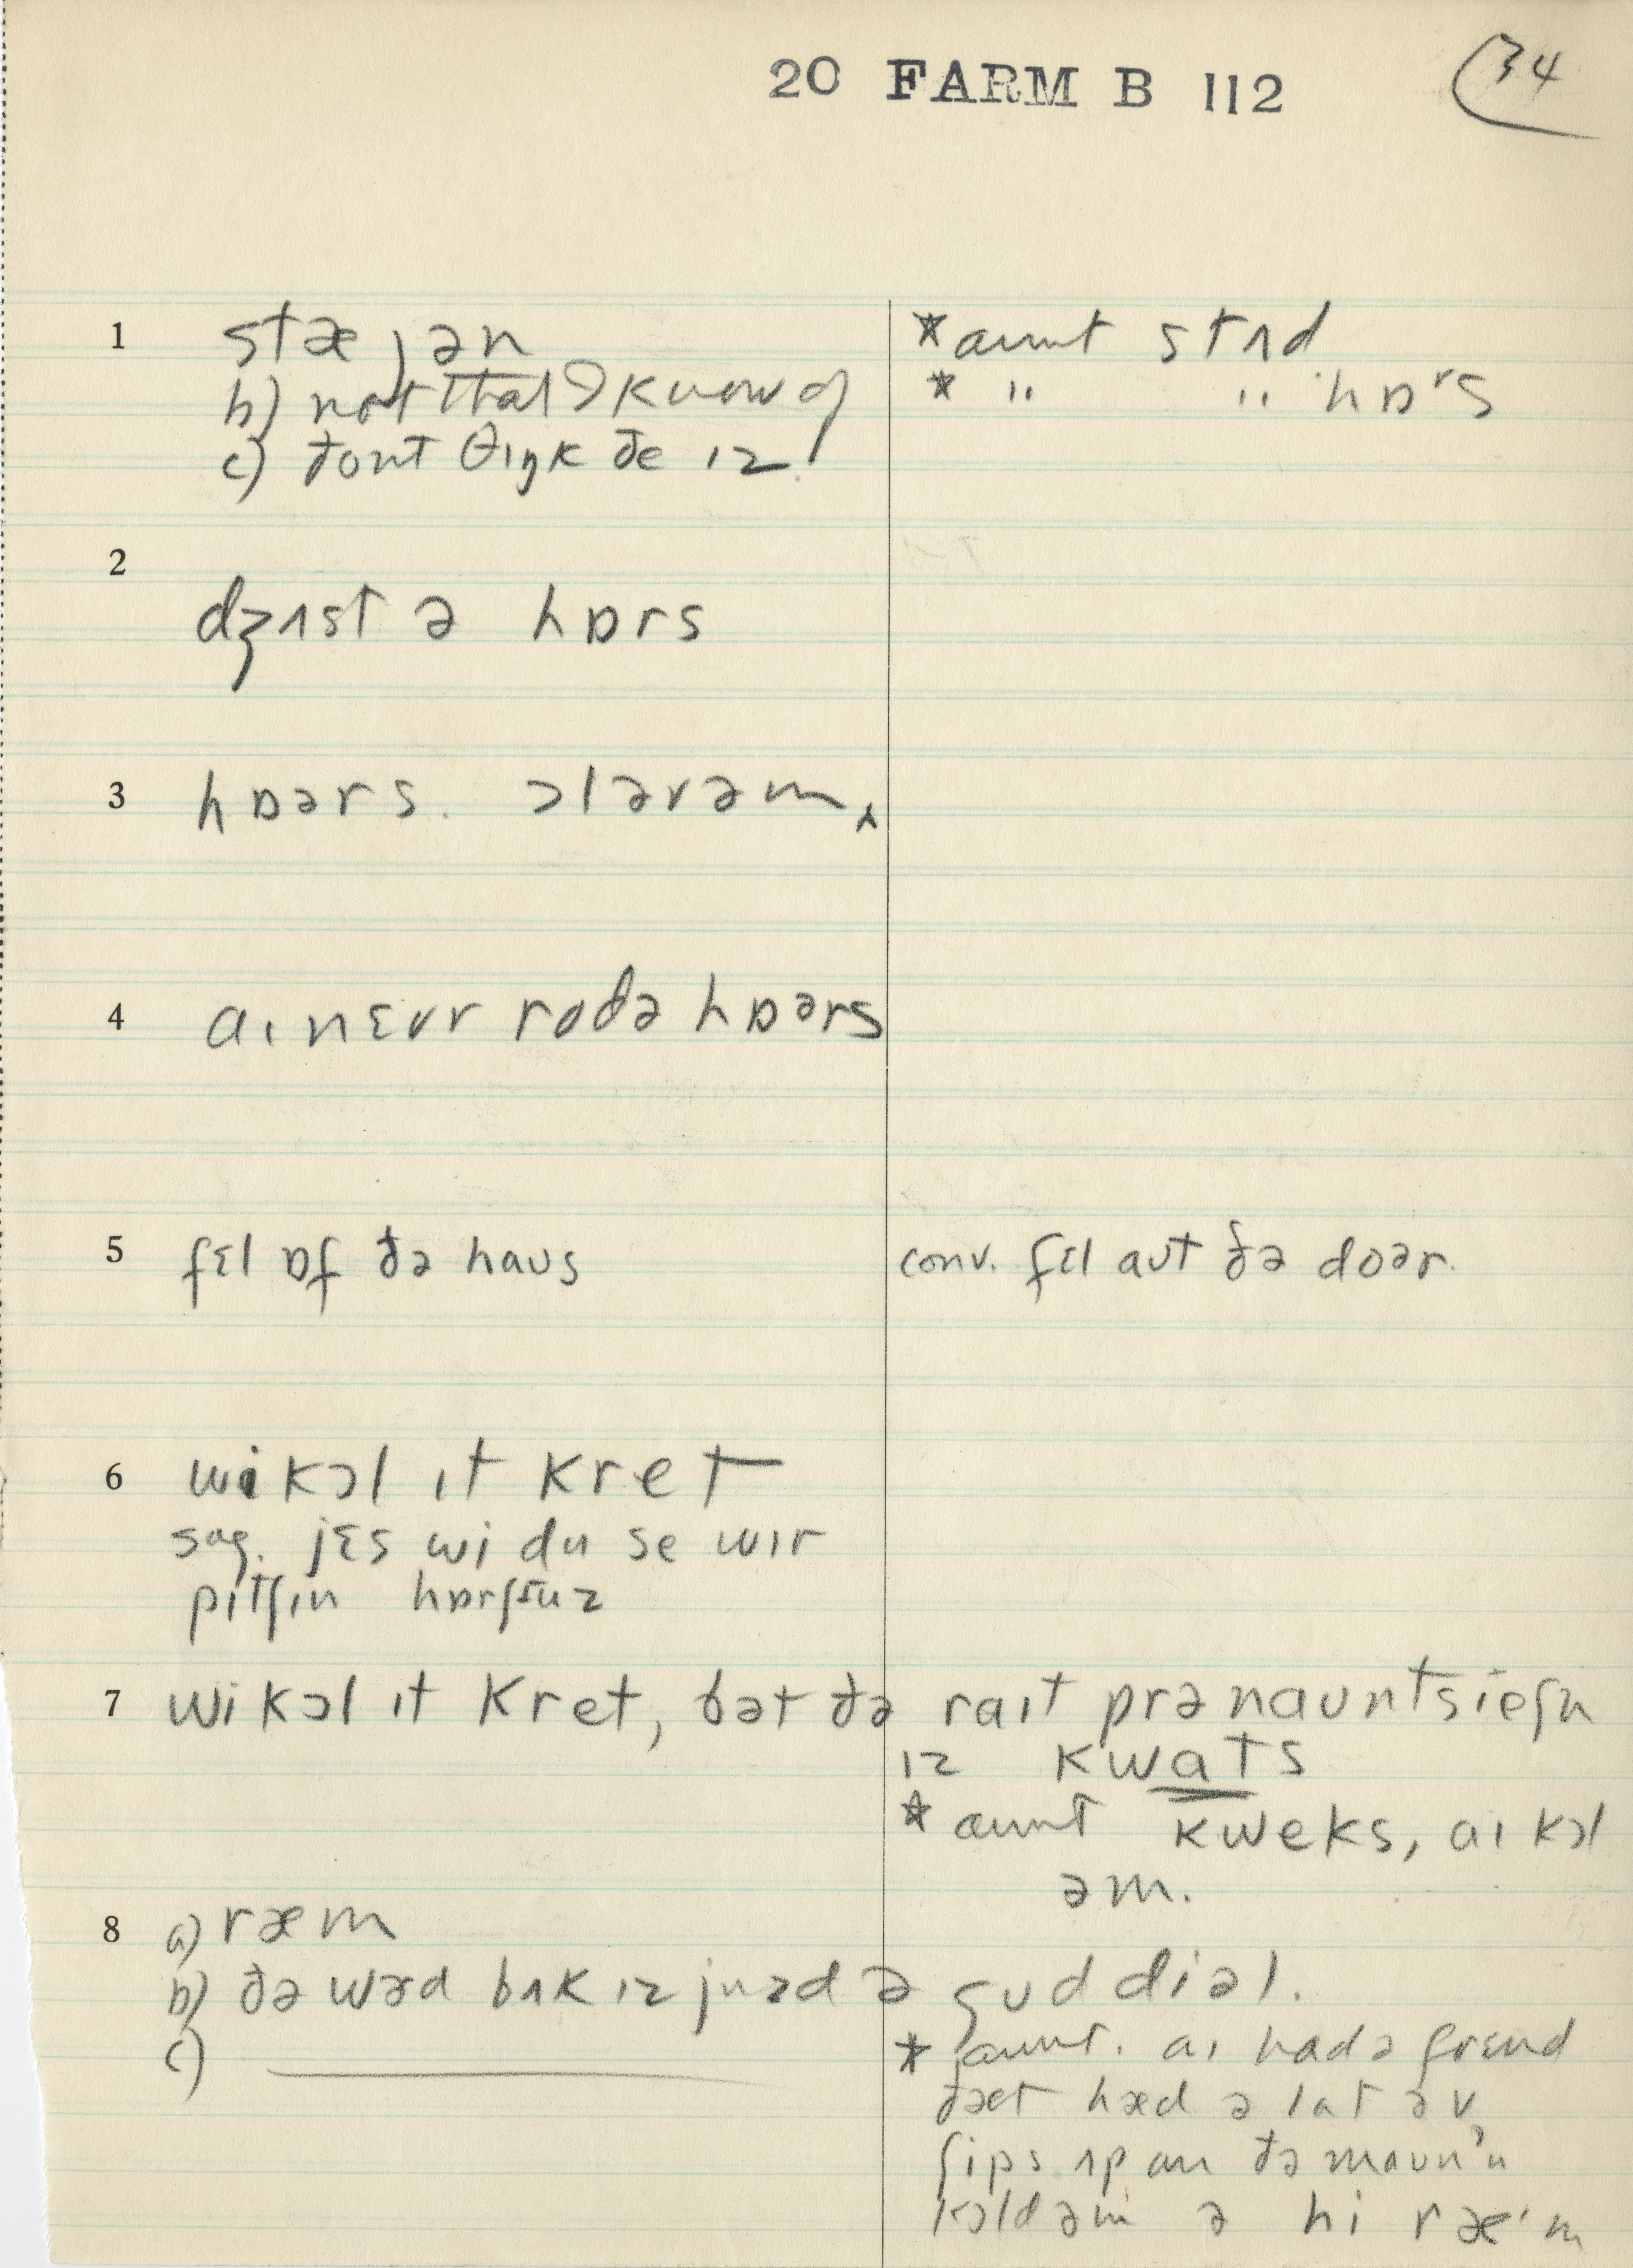 20 FARM B 112
34
1 stæjən
b) not that I know of
c) ðont θɪŋk ðe ɪz
*aunt stʌd
* " " hɒrs
2
dʒʌst ə hɒrs
3 hɒərs. ɔl əv əm
4 aɪ nɛvr rod ə hɒərs
5 fɛl ɒf ðə haus
conv. fɛl aut ðə doər.
6 wi kɔl ɪt kret
sug. jɛs wi du se wɪr
pɪtʃɪn
7 wi kɔl ɪt kret, bət ðə raɪt prənauntsieʃn
ɪz kwats
*aunt kweks, aɪ kɔl
əm.
8 a) ræm
b) ðə wərd bʌk ɪz juzd ə gud diəl.
c)
* aunt. aɪ had ə frɛnd
ðæt hæd ə lat əv
ʃips ʌp an ðə maun'n
kɔld əm ə hi ræ'm